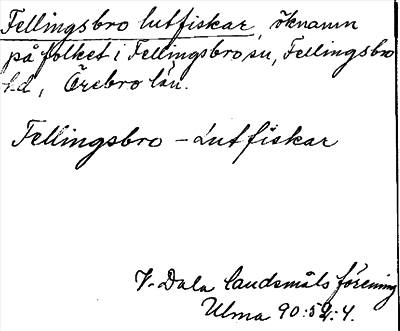 Fellingsbro lutfiskar, öknamn
på folket i Fellingsbro sn, Fellingsbro
hd, Örebro län.
Fellingsbro - Lutfiskar
V. Dala landsmåls förening
Ulma 90:52:4.